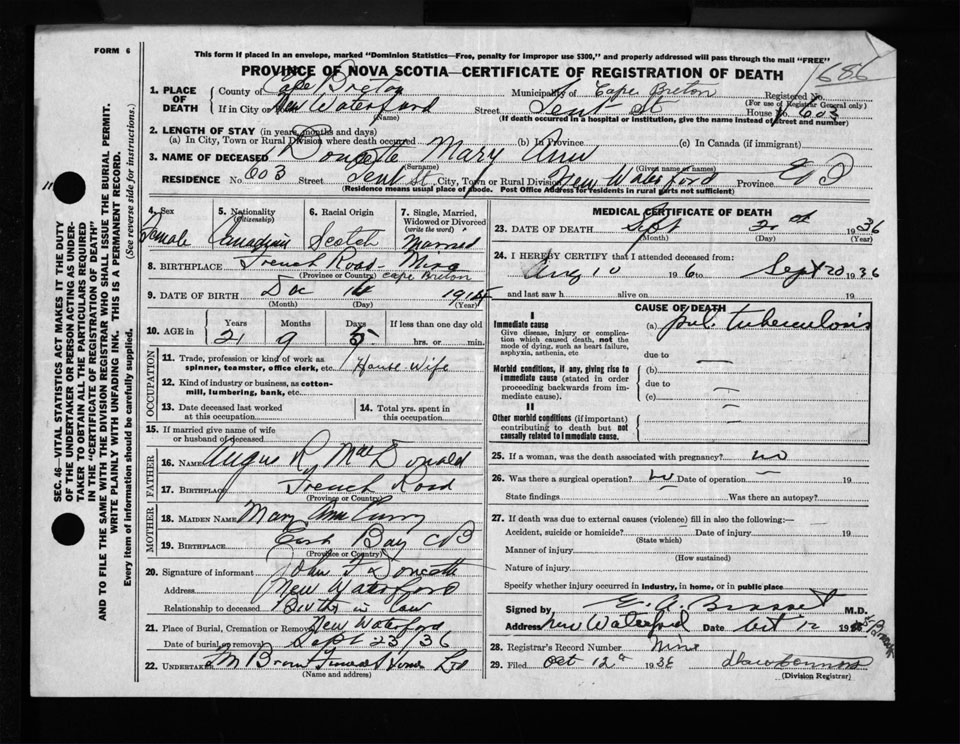 FORM 6
This form if placed in an envelope, marked "Dominion Statistics—Free, penalty for improper use $300," and properly addressed will pass through the mail "FREE"
PROVINCE OF NOVA SCOTIA—CERTIFICATE OF REGISTRATION OF DEATH
1686
1. PLACE OF DEATH
County of Cape Breton Municipality of Cape Breton Registered No.
(For use of Registrar General only)
If in City or New Waterford Street Tent St House No 603
(Name) (If death occurred in a hospital or institution, give the name instead of street and number)
2. LENGTH OF STAY (in years, months and days)
(a) In City, Town or Rural Division where death occurred (b) In Province (c) In Canada (if immigrant)
3. NAME OF DECEASED Doucette Mary Ann
(Surname) (Given name or names)
RESIDENCE No. 603 Street Tent St City, Town or Rural Division New Waterford Province
(Residence means usual place of abode. Post Office Address for residents in rural parts not sufficient)
4. Sex Female
5. Nationality (Citizenship) Canadian
6. Racial Origin Scotch
7. Single, Married, Widowed or Divorced (write the word) Married
8. BIRTHPLACE French Road - Mira Cape Breton
(Province or Country)
9. DATE OF BIRTH Dec 14
(Month) (Day) (Year)
10. AGE in Years Months Days If less than one day old
21 9 5 hrs. or min.
OCCUPATION
11. Trade, profession or kind of work as spinner, teamster, office clerk, etc. House Wife
12. Kind of industry or business, as cotton-mill, lumbering, bank, etc.
13. Date deceased last worked at this occupation
14. Total yrs. spent in this occupation
15. If married give name of wife or husband of deceased
FATHER
16. Name Angus R MacDonald
17. Birthplace French Road
(Province or Country)
MOTHER
18. Maiden Name Mary Ann Curry
19. Birthplace East Bay CB
(Province or Country)
20. Signature of informant John J Doucette
Address New Waterford
Relationship to deceased Brother in law
21. Place of Burial, Cremation or Removal New Waterford
Date of burial or removal Sept 23 36
22. Undertaker
(Name and address)
MEDICAL CERTIFICATE OF DEATH
23. DATE OF DEATH Sept 1936
(Month) (Day) (Year)
24. I HEREBY CERTIFY that I attended deceased from:
Aug 10 1936 to Sept 20 1936
and last saw h alive on 19
CAUSE OF DEATH
I
Immediate cause (a) pul. tuberculosis
Give disease, injury or complication which caused death, not the mode of dying, such as heart failure, asphyxia, asthenia, etc
due to —
Morbid conditions, if any, giving rise to immediate cause (stated in order proceeding backwards from immediate cause).
(b)
due to —
(c)
II
Other morbid conditions (if important) contributing to death but not causally related to immediate cause.
25. If a woman, was the death associated with pregnancy? no
26. Was there a surgical operation? no Date of operation 19
State findings Was there an autopsy?
27. If death was due to external causes (violence) fill in also the following:—
Accident, suicide or homicide? Date of injury 19
(State which)
Manner of injury
(How sustained)
Nature of injury
Specify whether injury occurred in industry, in home, or in public place
Signed by M.D.
Address New Waterford Date Oct 12 19
28. Registrar's Record Number Nine
29. Filed Oct 12 1936
(Division Registrar)
SEC. 46—VITAL STATISTICS ACT MAKES IT THE DUTY
OF THE UNDERTAKER OR PERSON ACTING AS UNDER-
TAKER TO OBTAIN ALL THE PARTICULARS REQUIRED
IN THE "CERTIFICATE OF REGISTRATION OF DEATH"
AND TO FILE THE SAME WITH THE DIVISION REGISTRAR WHO SHALL ISSUE THE BURIAL PERMIT.
WRITE PLAINLY WITH UNFADING INK. THIS IS A PERMANENT RECORD.
Every item of information should be carefully supplied. (See reverse side for instructions.)